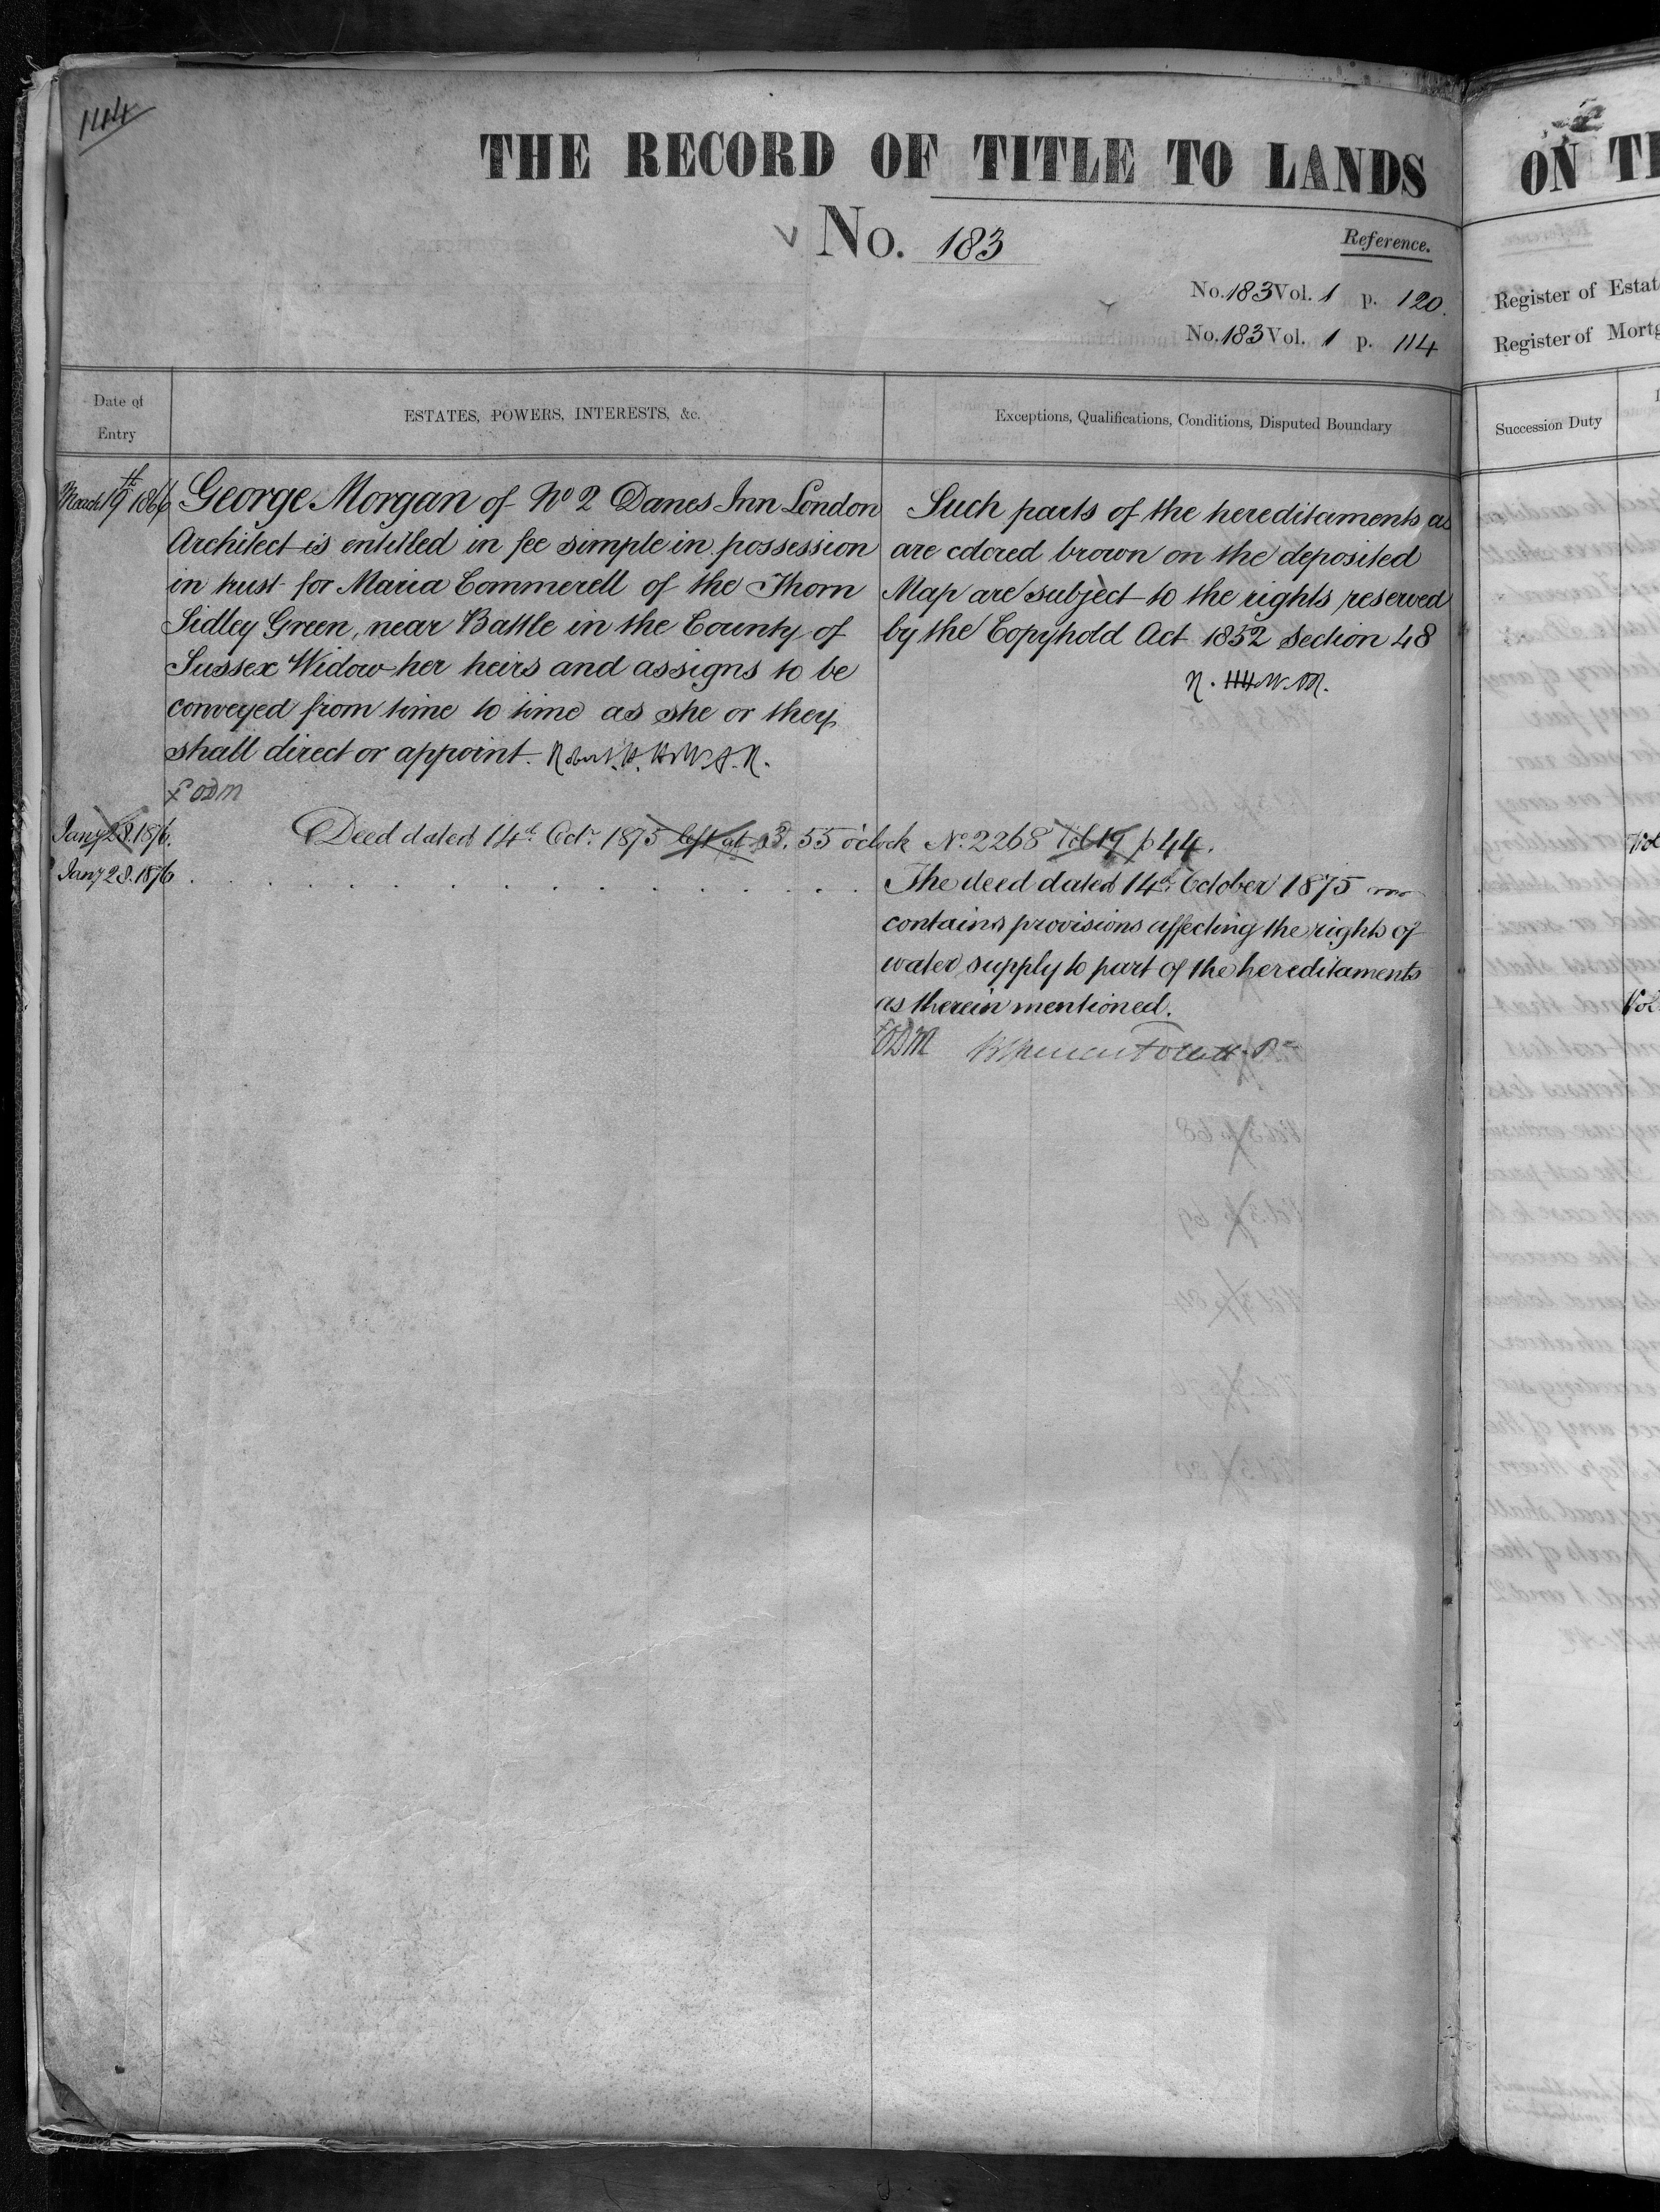 144
THE RECORD OF TITLE TO LANDS
No. 183
Reference.
No. 183 Vol. 1 p. 120.
No. 183 Vol. 1 p. 114
Date of
Entry
ESTATES, POWERS, INTERESTS, &c.
Exceptions, Qualifications, Conditions, Disputed Boundary
March 19th 1866
George Morgan of No 2 Danes Inn London
Architect is entitled in fee simple in possession
in trust for Maria Commerell of the Thorn
Sidley Green, near Battle in the County of
Sussex Widow her heirs and assigns to be
conveyed from time to time as she or they
shall direct or appoint.
Such parts of the hereditaments as
are colored brown on the deposited
Map are subject to the rights reserved
by the Copyhold Act 1852 Section 48
Jany 28. 1876. Deed dated 14th Octr. 1875 left at 3. 55 o'clock No. 2268 Vol 19 p 44.
Jany 28. 1876
The deed dated 14th October 1875
contains provisions affecting the rights of
water supply to part of the hereditaments
as therein mentioned.
ON
Register of
Register of
Succession Duty